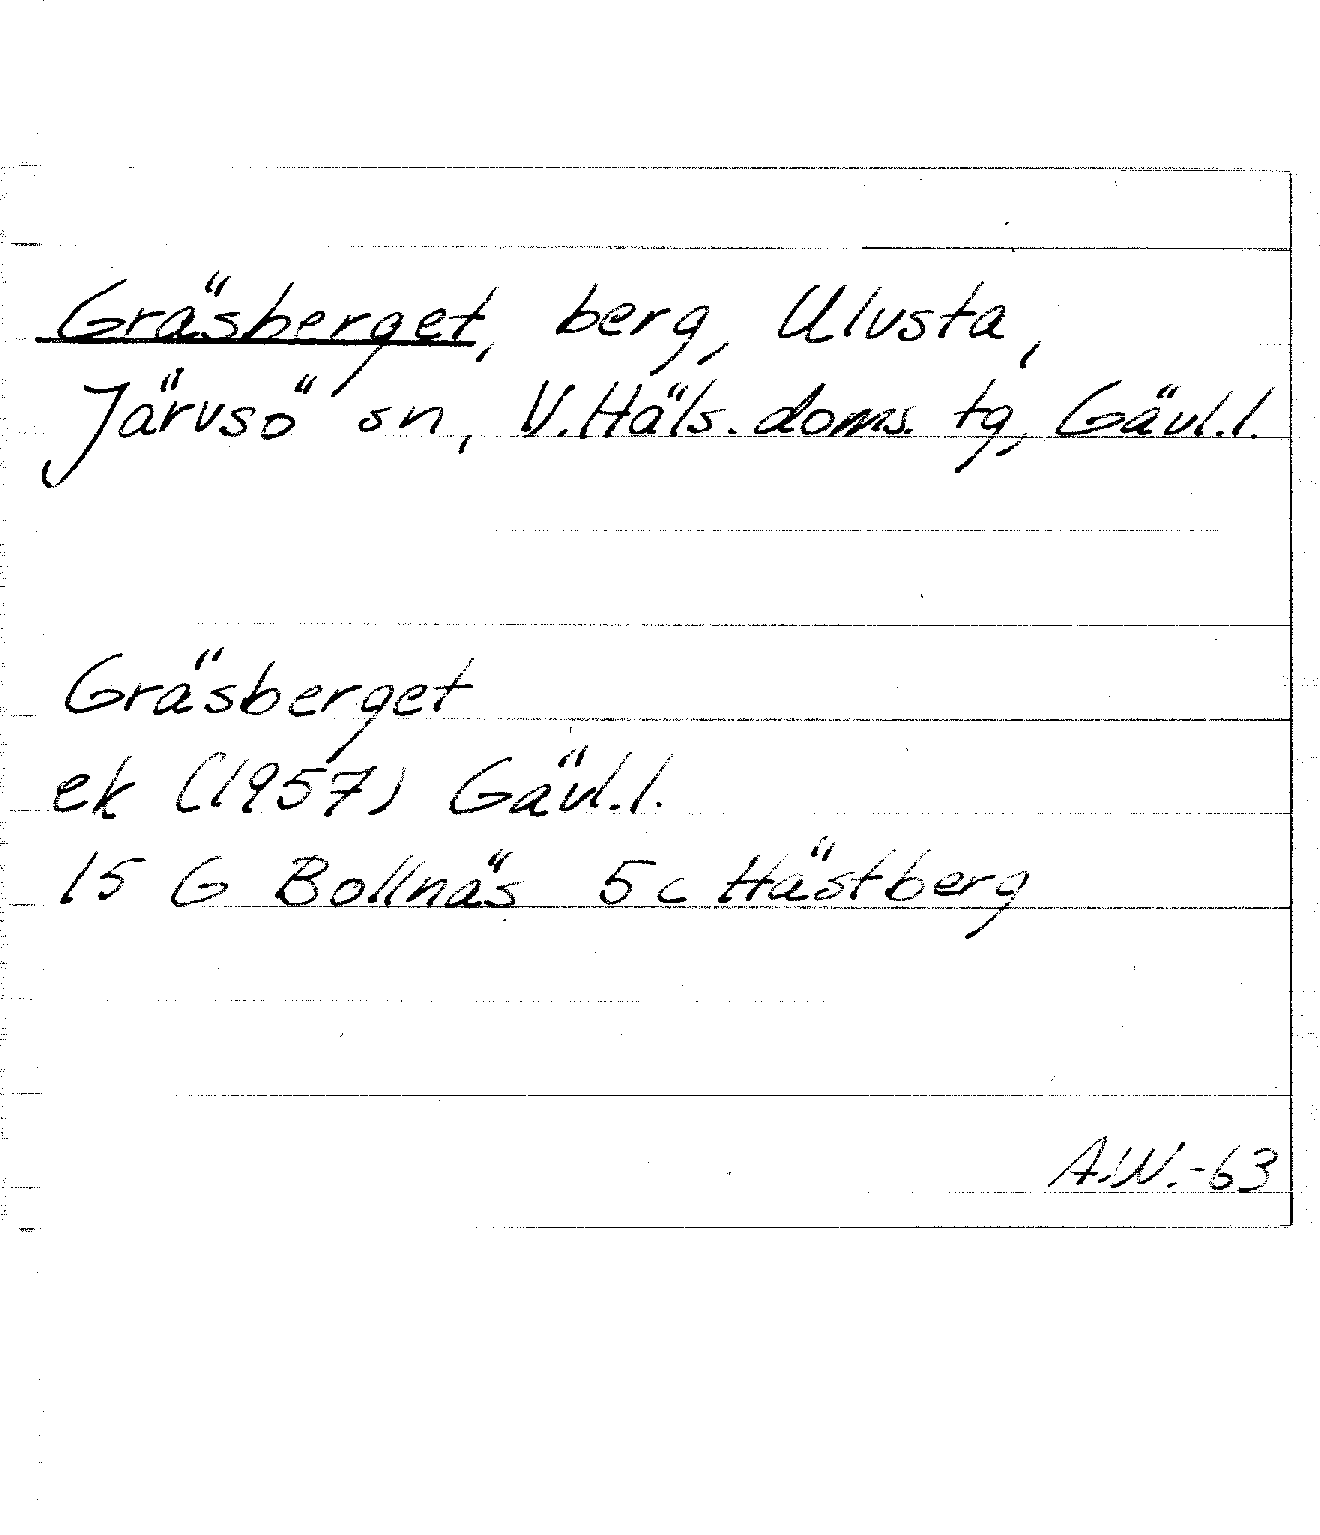 Gräsberget, berg, Ulvsta,
Järvsö sn, V.Häls. doms. tg, Gävl.l.
Gräsberget
ek (1957) Gävl.l.
15 G Bollnäs 5c Hästberg
A.W.-63